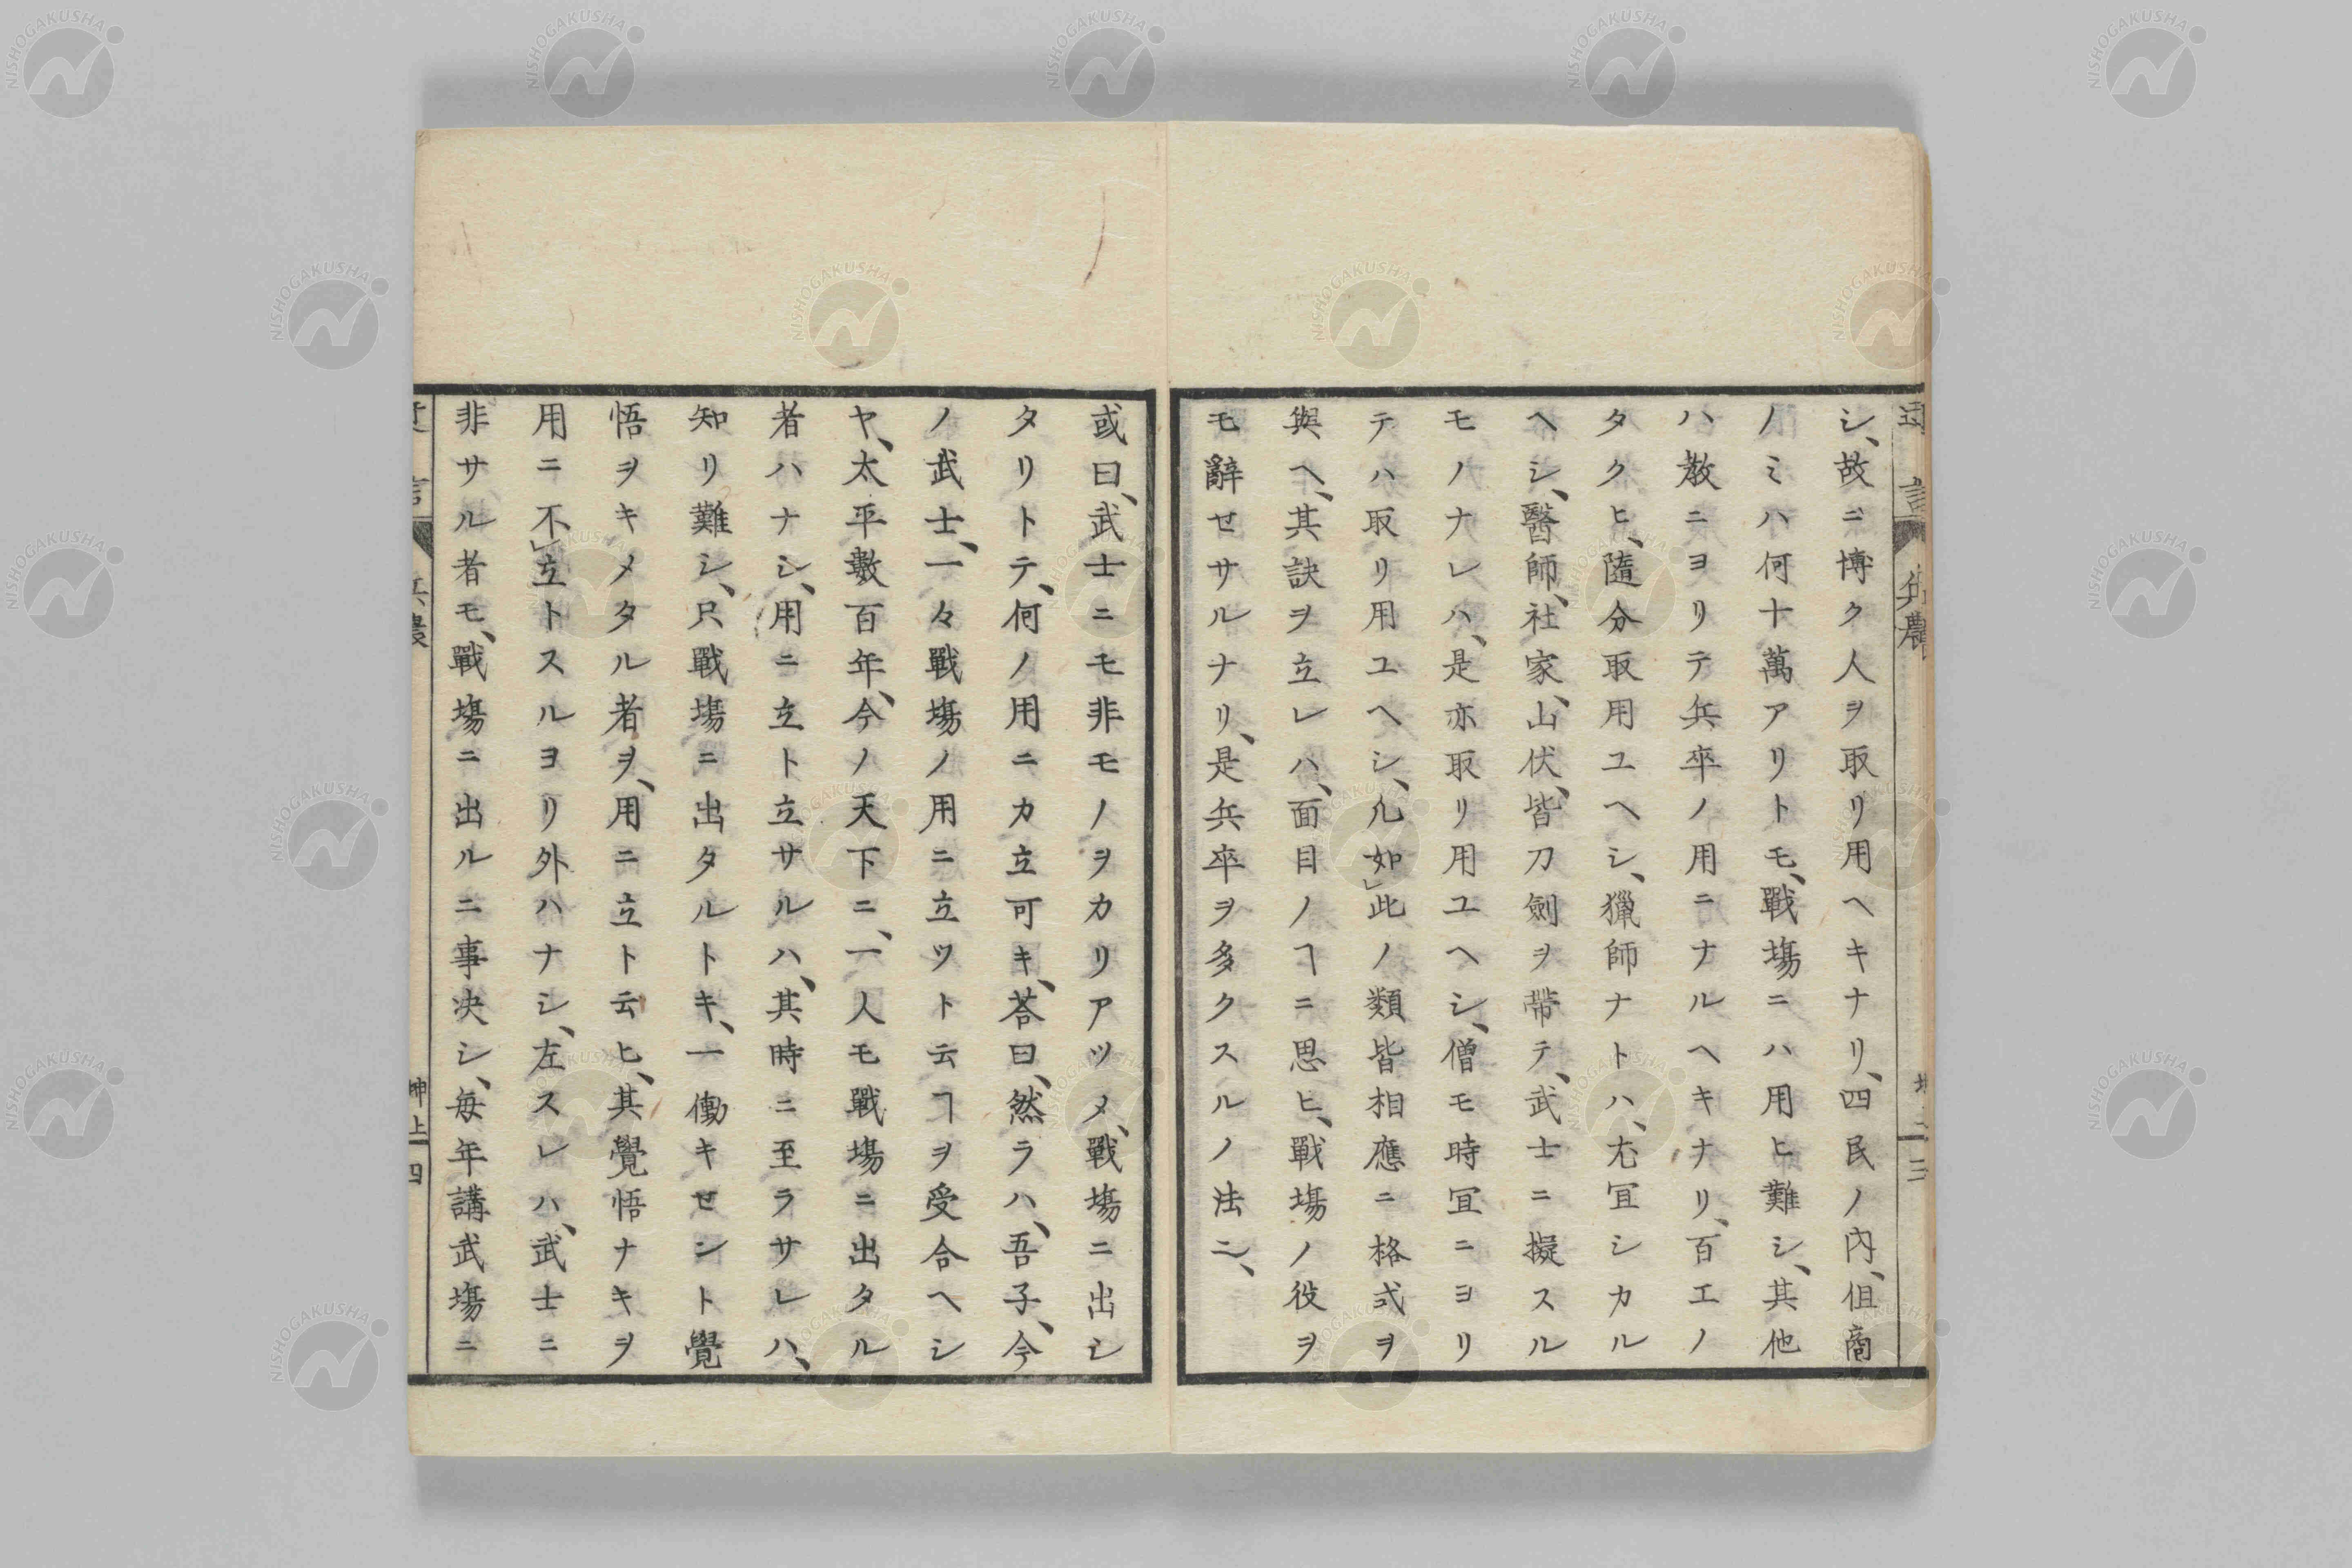 シ、故ニ博ク人ヲ取リ用ヘキナリ、四民ノ內、但商
ノミハ何十萬アリトモ、戰塲ニハ用ヒ難シ、其他
ハ敎ニヨリテ兵卒ノ用ニナルヘキナリ、百工ノ
タクヒ、隨分取用ユヘシ、獵師ナトハ、尤冝シカル
ヘシ、醫師、社家、山伏、皆刀劍ヲ帶テ、武士ニ擬スル
モノナレハ、是亦取リ用ユヘシ、僧モ時冝ニヨリ
テハ取リ用ユヘシ、凢如㆑此ノ類皆相應ニ格式ヲ
與ヘ、其訣ヲ立レハ、面目ノヿニ思ヒ、戰塲ノ役ヲ
モ辭セサルナリ、是兵卒ヲ多クスルノ法ニ、
或曰、武士ニモ非モノヲカリアツメ、戰塲ニ出シ
タリトテ、何ノ用ニカ立可キ、荅曰、然ラハ、吾子、今
ノ武士、一々戰塲ノ用ニ立ツト云ヿヲ受合ヘシ
ヤ、太平數百年、今ノ天下ニ、一人モ戰塲ニ出タル
者ハナシ、用ニ立ト立サルハ、其時ニ至ラサレハ、
知リ難シ、只戰塲ニ出タルトキ、一働キセント覺
悟ヲキメタル者ヲ、用ニ立ト云ヒ、其覺悟ナキヲ
用ニ不㆑立トスルヨリ外ハナシ、左スレハ、武士ニ
非サル者モ、戰塲ニ出ルニ事决シ、每年講武塲ニ
兵農
坤上
四